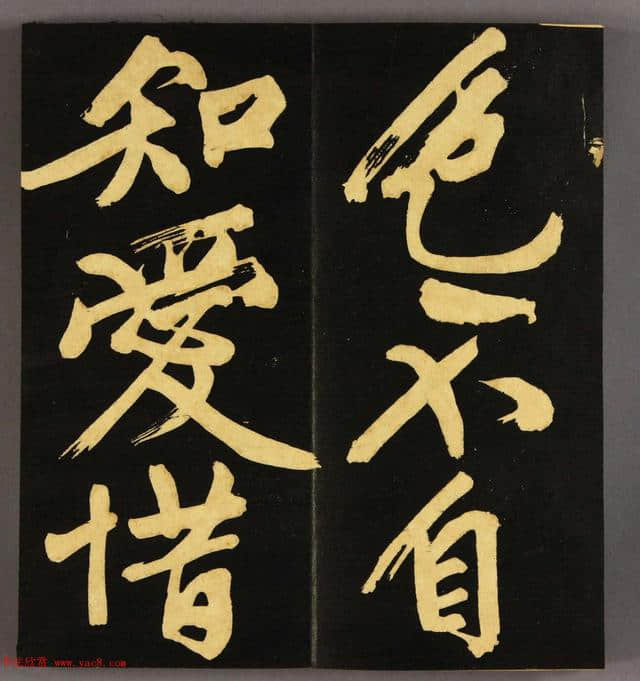 色不自
知愛惜
www.yac8.com